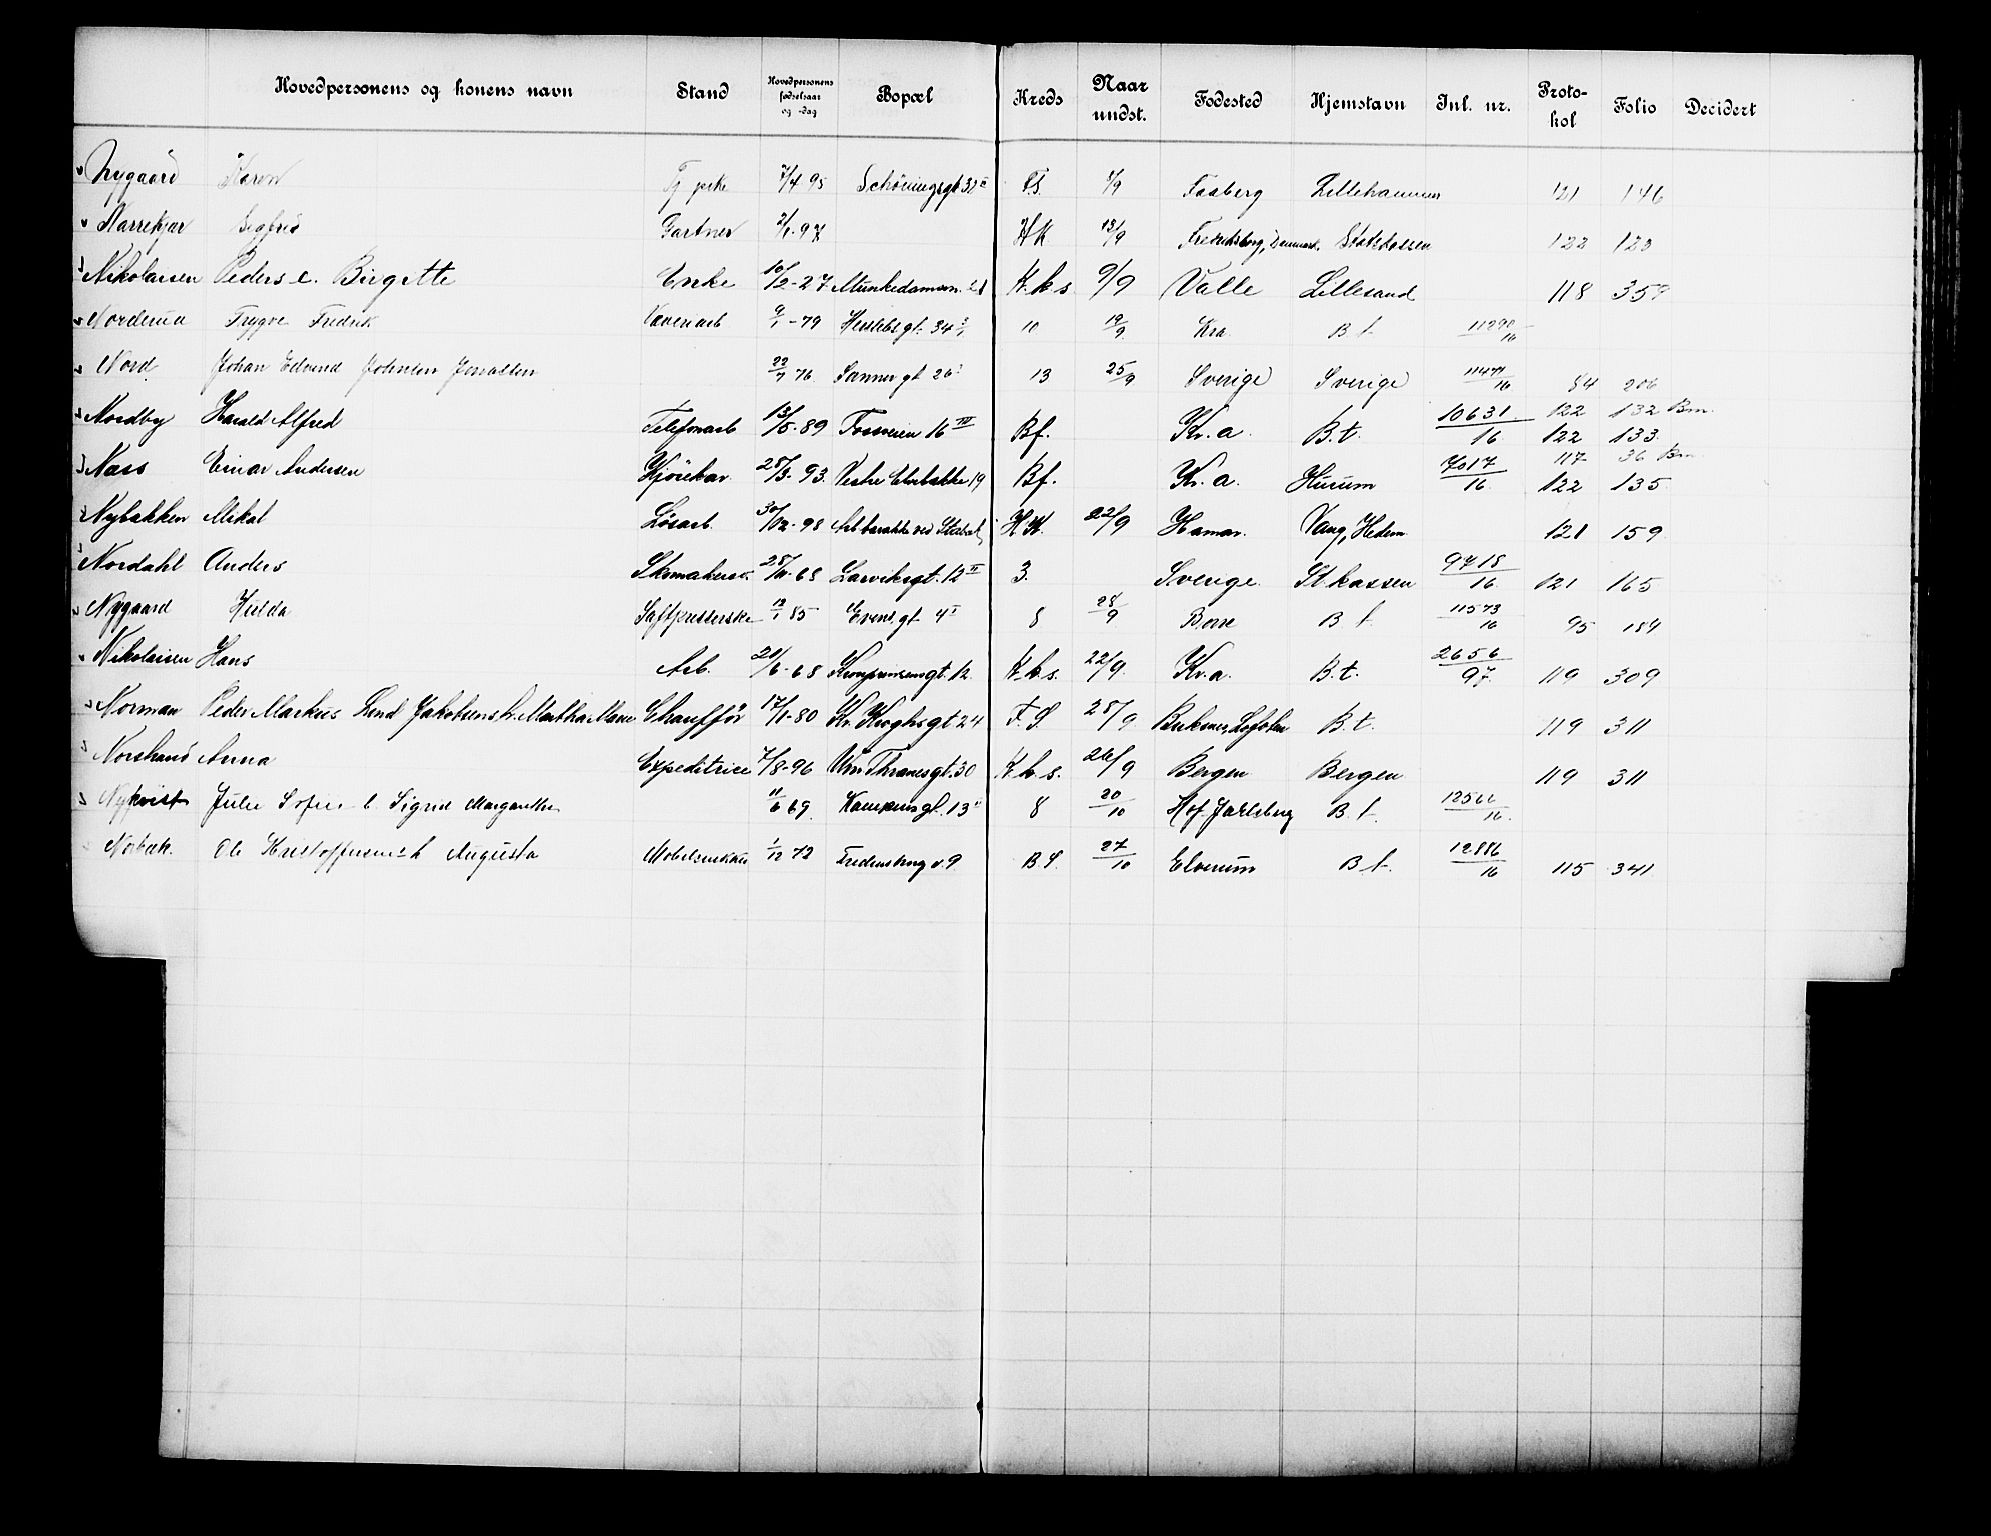 Hovedpersonens og konens navn Stand Hovedpersonens fødselsaar og -dag Bopæl Kreds Naar undst. Fødested Hjemstavn Inl. nr. Protokol Folio Decidert
Nygaard Karen Tj pike 7/4 95 Schöningsgt 32 FS. 1/9 Faaberg Lillehammer 121 146
Narrekjær Sigfred Gartner 2/1-97 HK 13/9 Fredriksborg, Danmark. Statskassen 122 120
Nikolaisen Peders e. Birgitte Enke 10/2-27 Munkedamsvn. 21 K.k.s 9/9 Valle Lillesand 118 359
Norderud Trygve Fredrik Væveriarb 9/1-79 Herslebsgt. 34 10 19/9 Kra. B t 11290/16
Nord Johan Edvind Johnsen Jonassen 22/7 76 Sannergt 26 13 25/9 Sverige Sverige 11471/16 84 206
Nordby Harald Alfred Telefonarb 13/5-89 Fossveien 16 IV Bf. Kr.a. B.t. 10631/16 122 132 Bm.
122 133.
Næss Einar Andersen Kjörekar. 28/3-93. Vestre Elvebakke 19 Bf. Kr.a. Hurum 7017/16 117 36 Bm.
122 135
Nybakken Mikal Løsarb. 30/12-98 Arb barakke ved HK. 22/9 Hamar. Vang, Hedem. 121 159
Nordahl Anders Skomakersv. 28/10-68 Larviksgt. 12 II 3. Sverige. St.kassen 9718/16 121 165
Nygaard Hulda Saftpresserske 12/1 85 Evens.gt 4 I 8 28/9 Borre B t 11573/16 95 184
Nikolaisen Hans Arb. 20/6-68 gt. 12. K.k.s. 22/9. Kr.a. B.t. 2656/97 119 309
Norman Peder Markus Lind Jakobsen h. Martha Marie Chaufför 17/1-80 Kr. Kroghsgt 24 F.S. 28/9 Lofoten B.t. 119 311
Norstrand Anna Expeditrice 7/8-96 Vm Thranesgt. 30 K.k.s. 26/9 Bergen Bergen 119 311
Nykvist Julie Sofie h Sigrid Margarethe 11/6 69. Kampensgt. 13 II 8 20/10 Hof Jarlsberg B.t. 12566/16.
Norbæk. Ole Kristoffersen h Augusta Møbelsnekker 1/12 72 Fredensborg v. 9 B.S. 27/10 Elverum B t. 12886/16 115 341